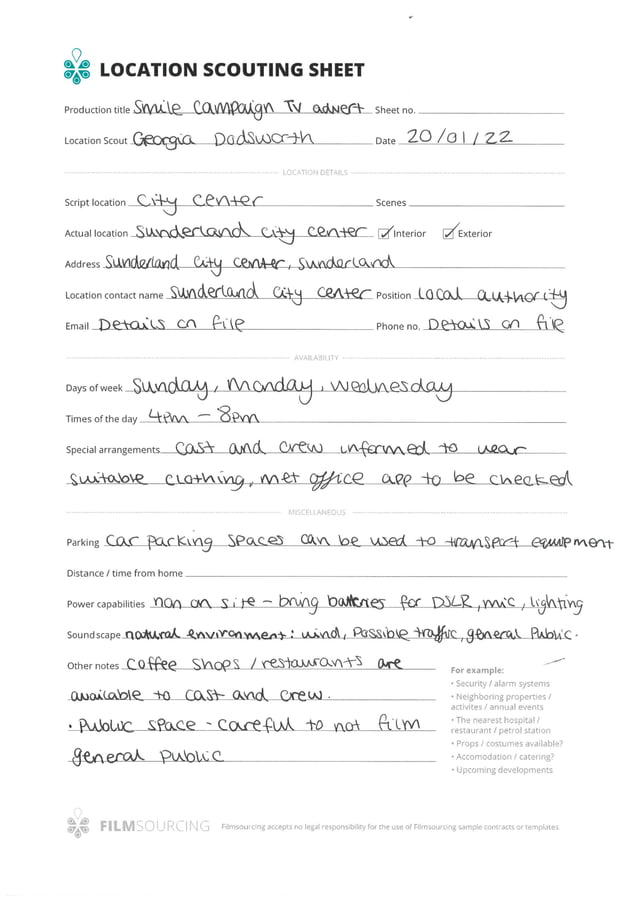 LOCATION SCOUTING SHEET
Production title Smile Campaign TV advert Sheet no.
Location Scout Georgia Dodsworth Date 20/01/22
LOCATION DETAILS
Script location City center Scenes
Actual location Sunderland city center ☑ Interior ☑ Exterior
Address Sunderland City center, Sunderland
Location contact name Sunderland City center Position local authority
Email Details on file Phone no. Details on file
AVAILABILITY
Days of week Sunday, Monday, Wednesday
Times of the day 4pm - 8pm
Special arrangements cast and crew informed to wear
suitable clothing, met office app to be checked
MISCELLANEOUS
Parking Car parking spaces can be used to transport equipment
Distance / time from home
Power capabilities non on site - bring batteries for DSLR, mic, lighting
Soundscape natural environment: wind, Possible traffic, general Public.
Other notes Coffee shops / restaurants are
available to cast and crew.
• Public space - careful to not film
general public
For example:
• Security / alarm systems
• Neighboring properties /
activites / annual events
• The nearest hospital /
restaurant / petrol station
• Props / costumes available?
• Accomodation / catering?
• Upcoming developments
FILMSOURCING Filmsourcing accepts no legal responsibility for the use of Filmsourcing sample contracts or templates